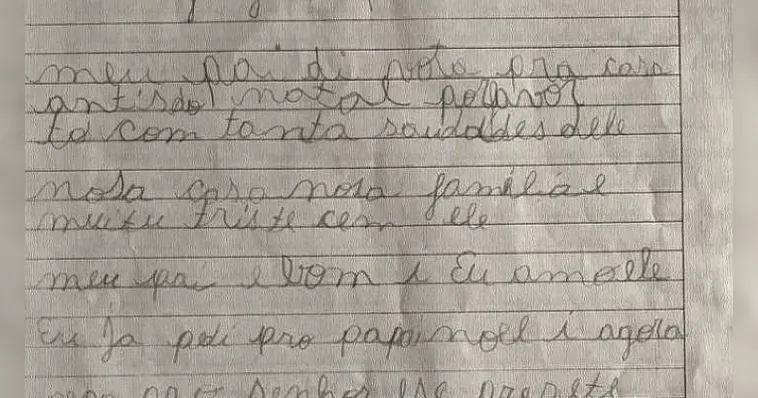 meu pai di volta pra casa
antis do natal porfavor
to com tanta saudades dele
nosa casa nosa familia e
muitu triste cem ele
meu pai e bom i Eu amo ele
Eu ja pedi pro papai noel i agora